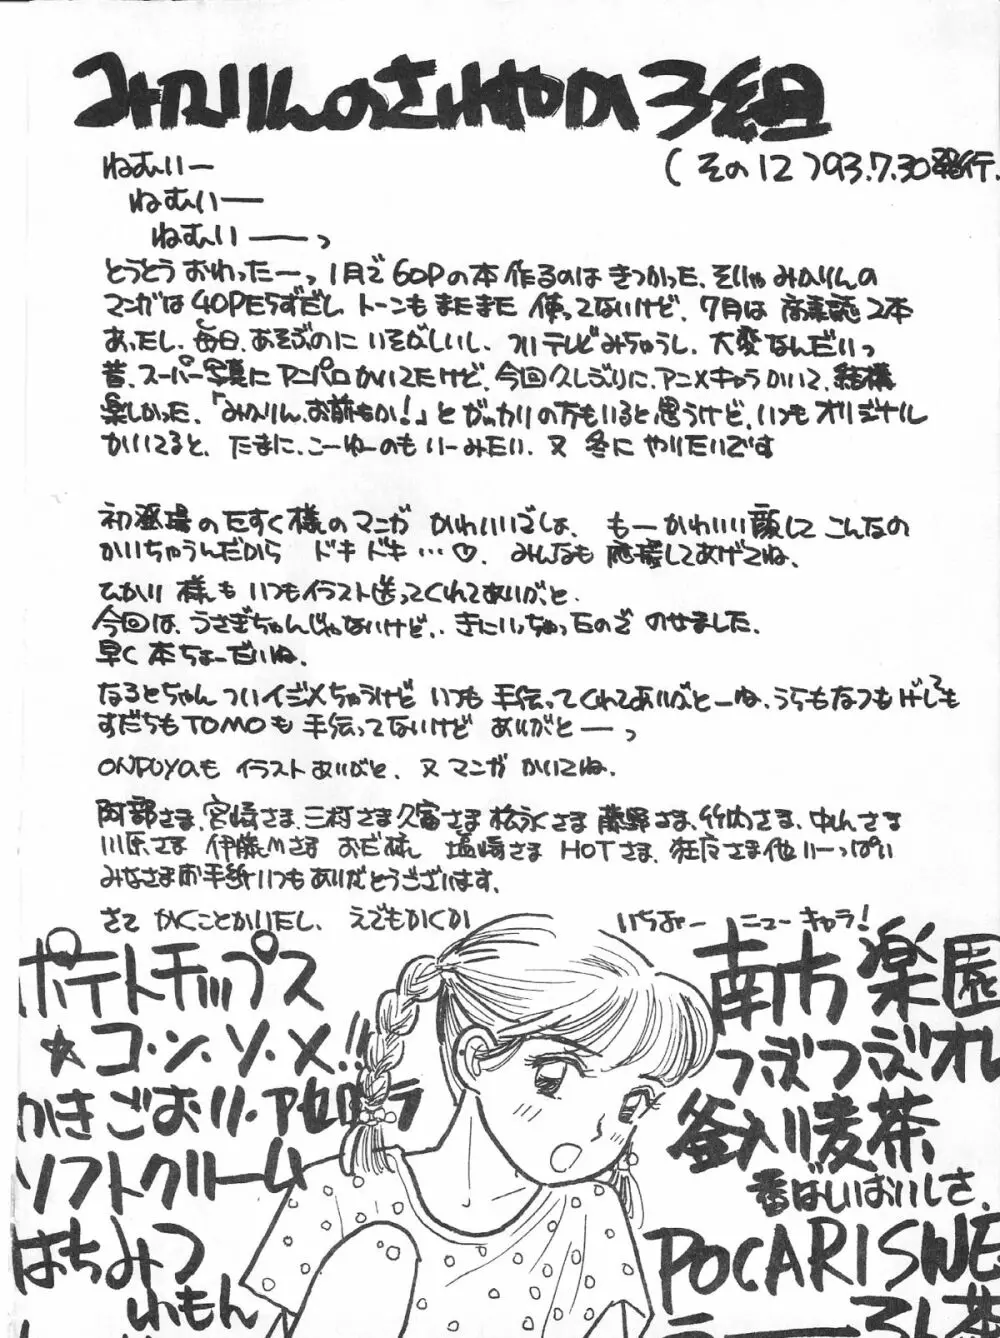 みかりんのさわやか3組
(その12)93.7.30発行.
ねむいー
ねむいー
ねむいーーっ
とうとうおわったーっ 1月で60Pの本作るのはきつかった、そりゃみかりんの
マンガは40Pたらずだし トーンもまたまた使ってないけど、7月は 2本
あったし、毎日、あそぶのにいそがしいし、ついテレビみちゃうし、大変なんだいっ
昔、スーパー写真にアニパロかいてたけど、今回久しぶりに、アニメキャラかいて、結構
楽しかった、「みかりん、お前もか!」とがっかりの方もいると思うけど、いつもオリジナル
かいてると、たまに、こーゆーのもいーみたい、又 冬に やりたいです
初登場のたすく様のマンガ かわいいでしょ、 もーかわいい顔して こんなの
かいちゃうんだから ドキドキ…♡、 みんなも 応援してあげてね、
ひかり 様も いつもイラスト送ってくれてありがと、
今回は、うさぎちゃんじゃないけど、、きにいっちゃったのでのせました、
早く 本ちょーだいね、
なるとちゃん ついイジメちゃうけど いつも 手伝ってくれてありがとーね、うらもなつもげしても
すだちもTOMOも 手伝ってないけど ありがとーっ
ONPUYAも イラストありがと、又 マンガ かいてね、
阿部さま、宮崎さま、三村さま久富さま松永さま 藤野さま、竹内さま、中山さま
川原さま 伊藤Mさま おだ様 塩崎さま HOTさま、狂疫さま他いーっぱい
みなさまお手紙いつもありがとうございます、
さて かくことかいたし、 えでもかくか
いちおー ニューキャラ!
ポテトチップス
☆コ・ン・ソ・メ!!
かきごおり・アセロラ
ソフトクリーム
はちみつ
れもん
南方楽園
つぶつぶオレ
釜入り麦茶
香ばしいおいしさ、
POCARISWE